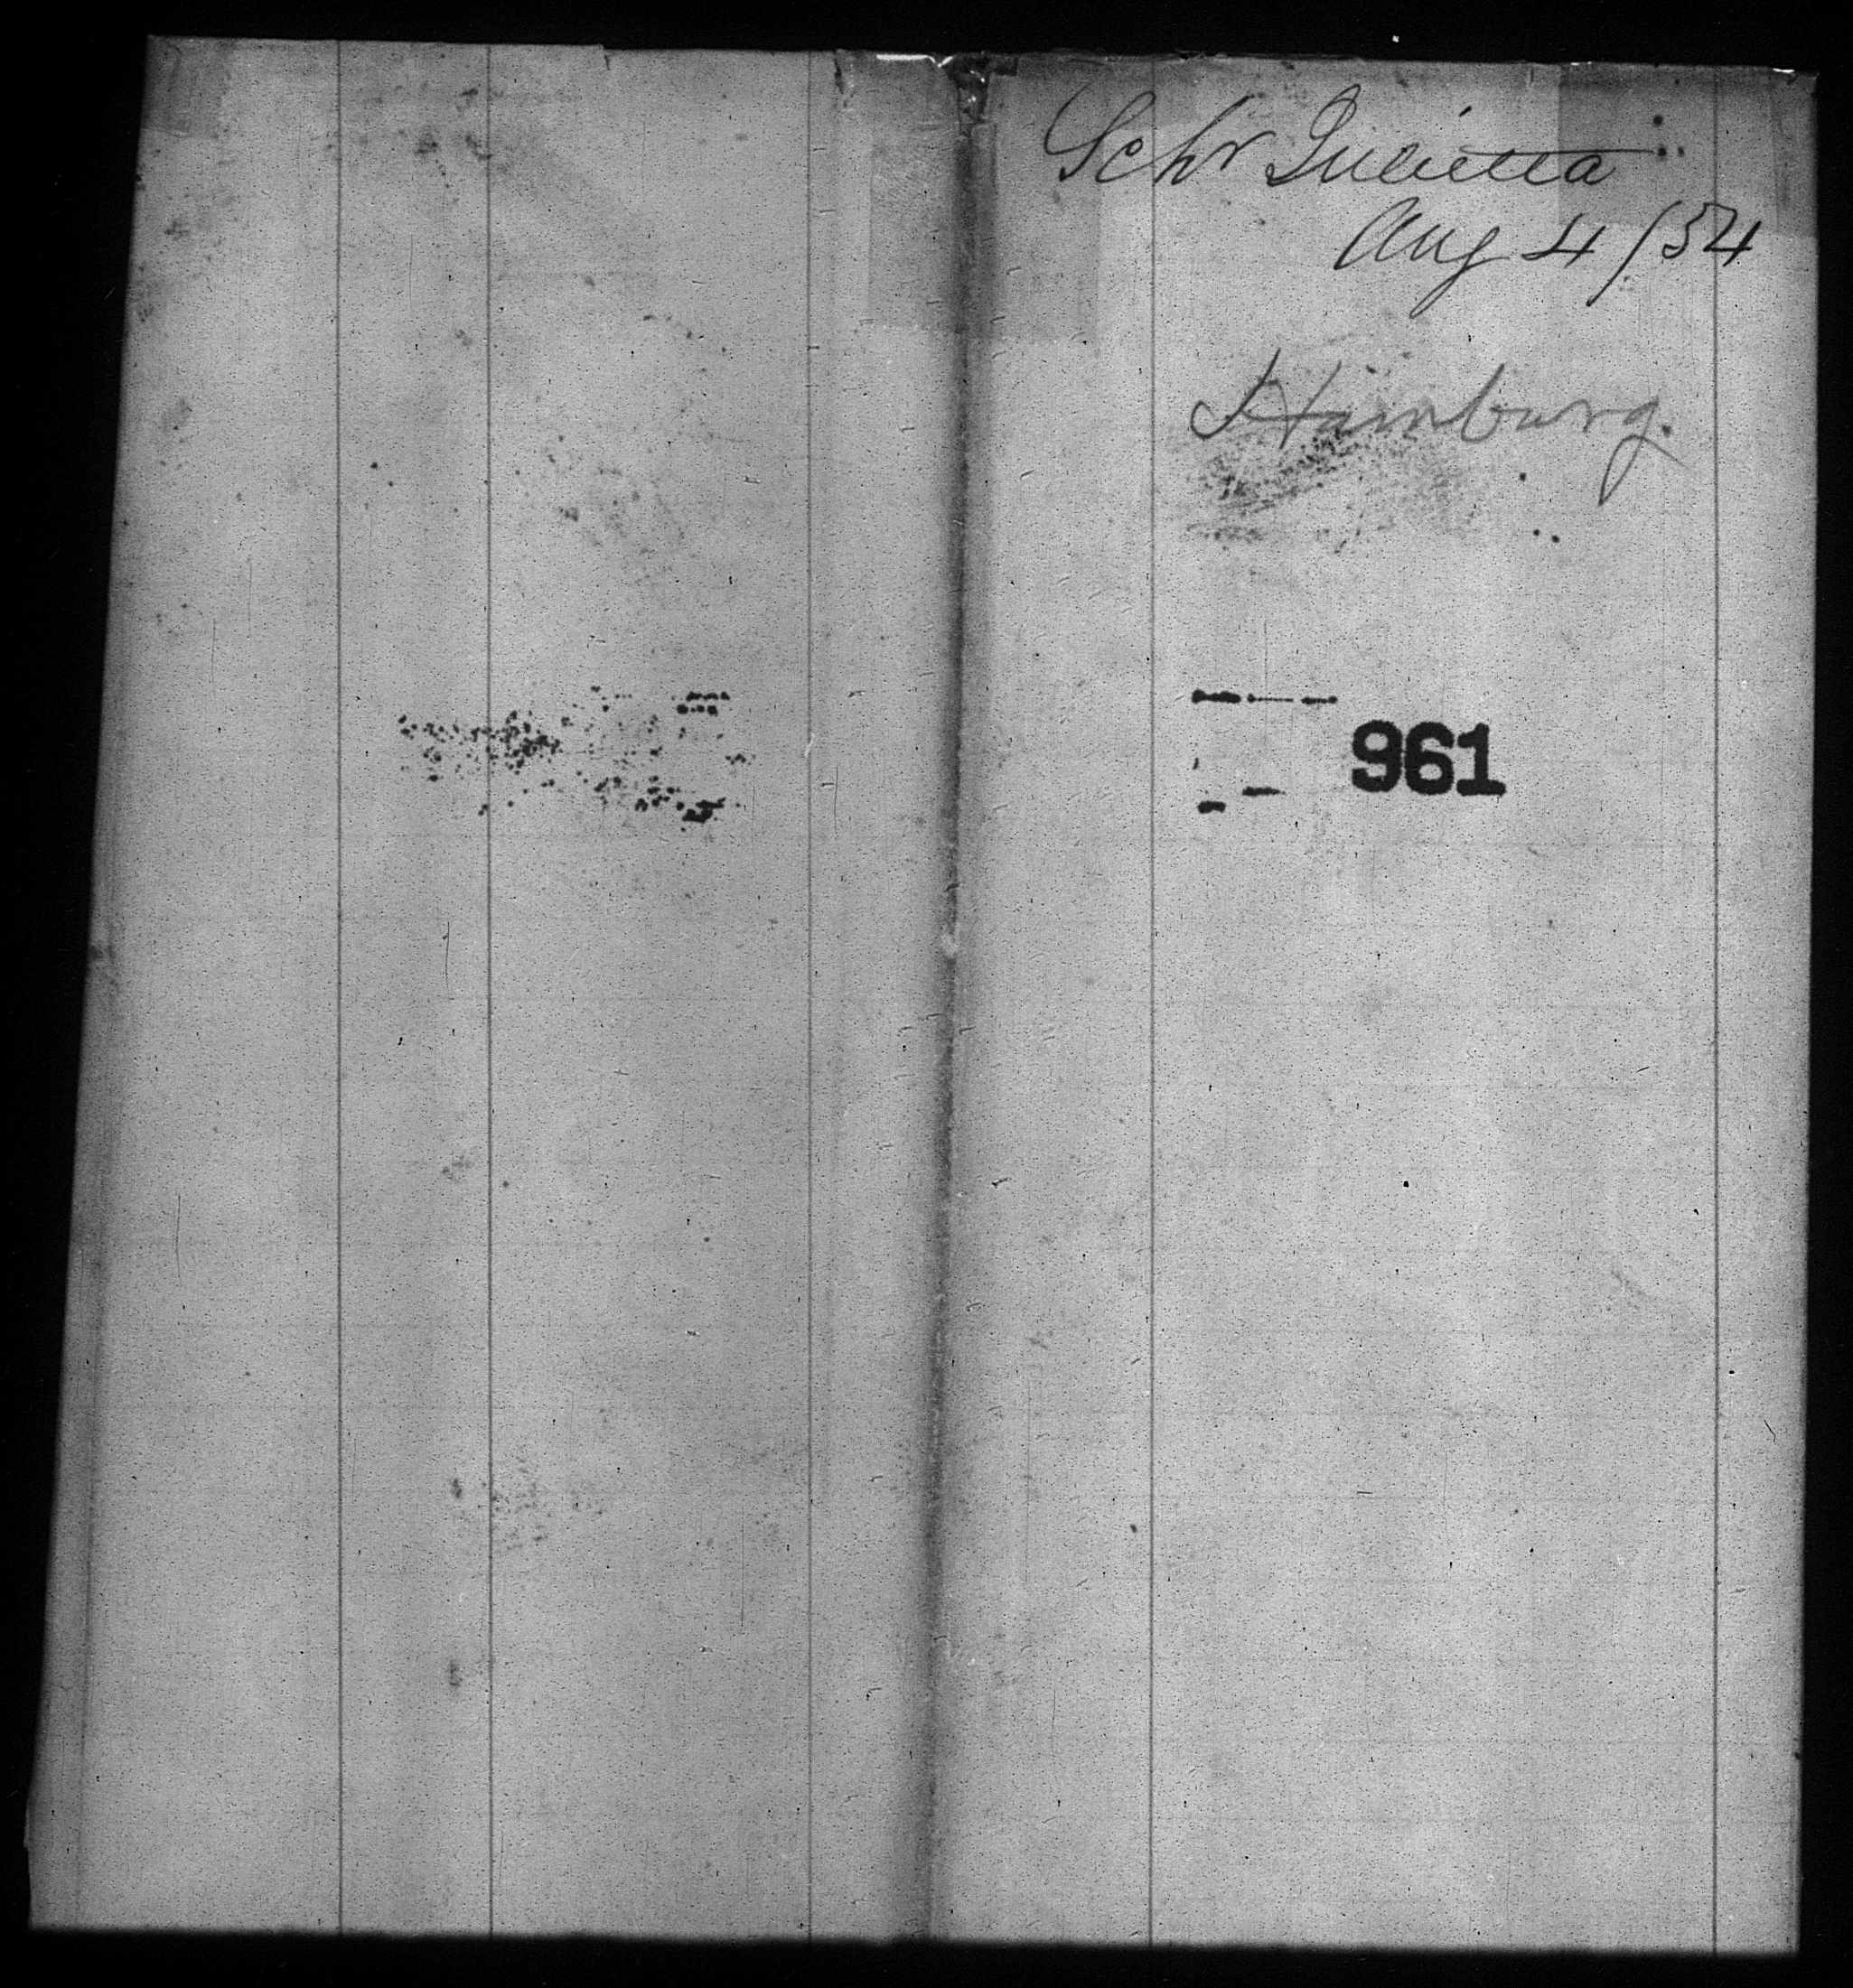 Schr Julietta
Aug 4/54
Hamburg.
961